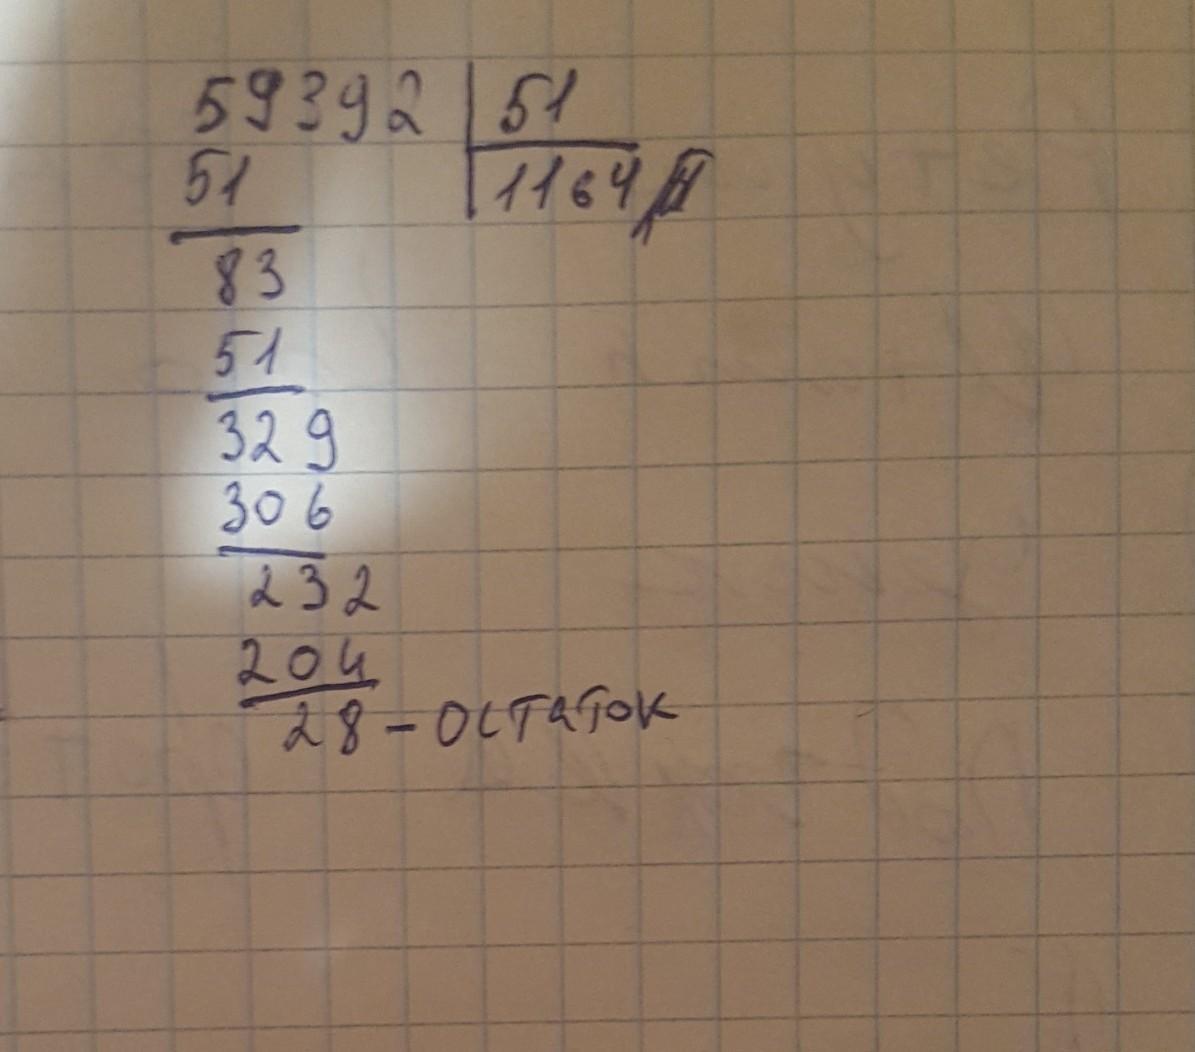 59392 51
51 1164
83
51
329
306
232
204
28 - остаток